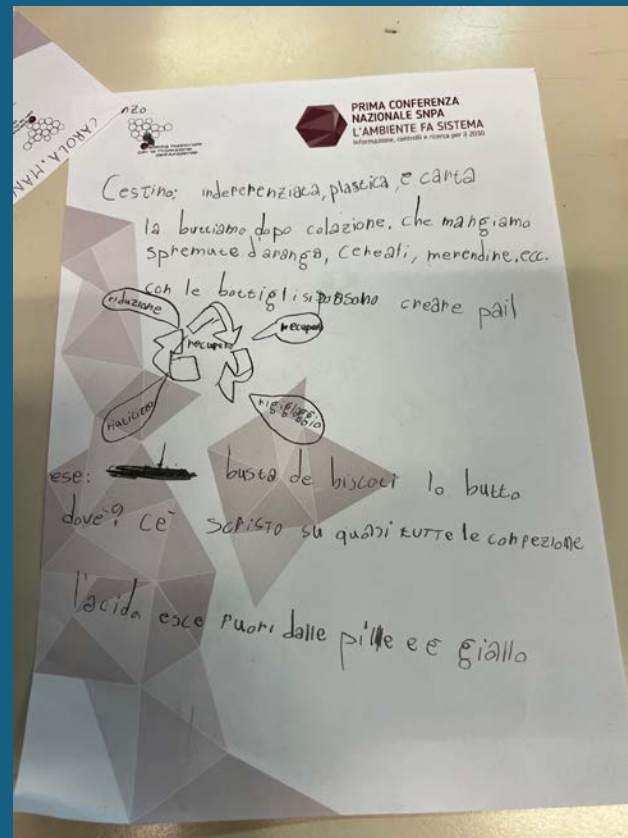 CAROLA.MAN
nzo
PRIMA CONFERENZA
NAZIONALE SNPA
L'AMBIENTE FA SISTEMA
Informazione, controlli e ricerca per il 2030
Cestino: inderenziaca, plastica, e carta
la buttiamo dopo colazione. che mangiamo
spremute d'aranga, cereali, merendine, ecc.
con le bottigli si possono creare pail
riduzione
recupero
riutilizzo
ese: busta de biscoti lo butto
dove? ce' scristo su quasi tutte le confezione
l'acida esce fuori dalle pille e e giallo